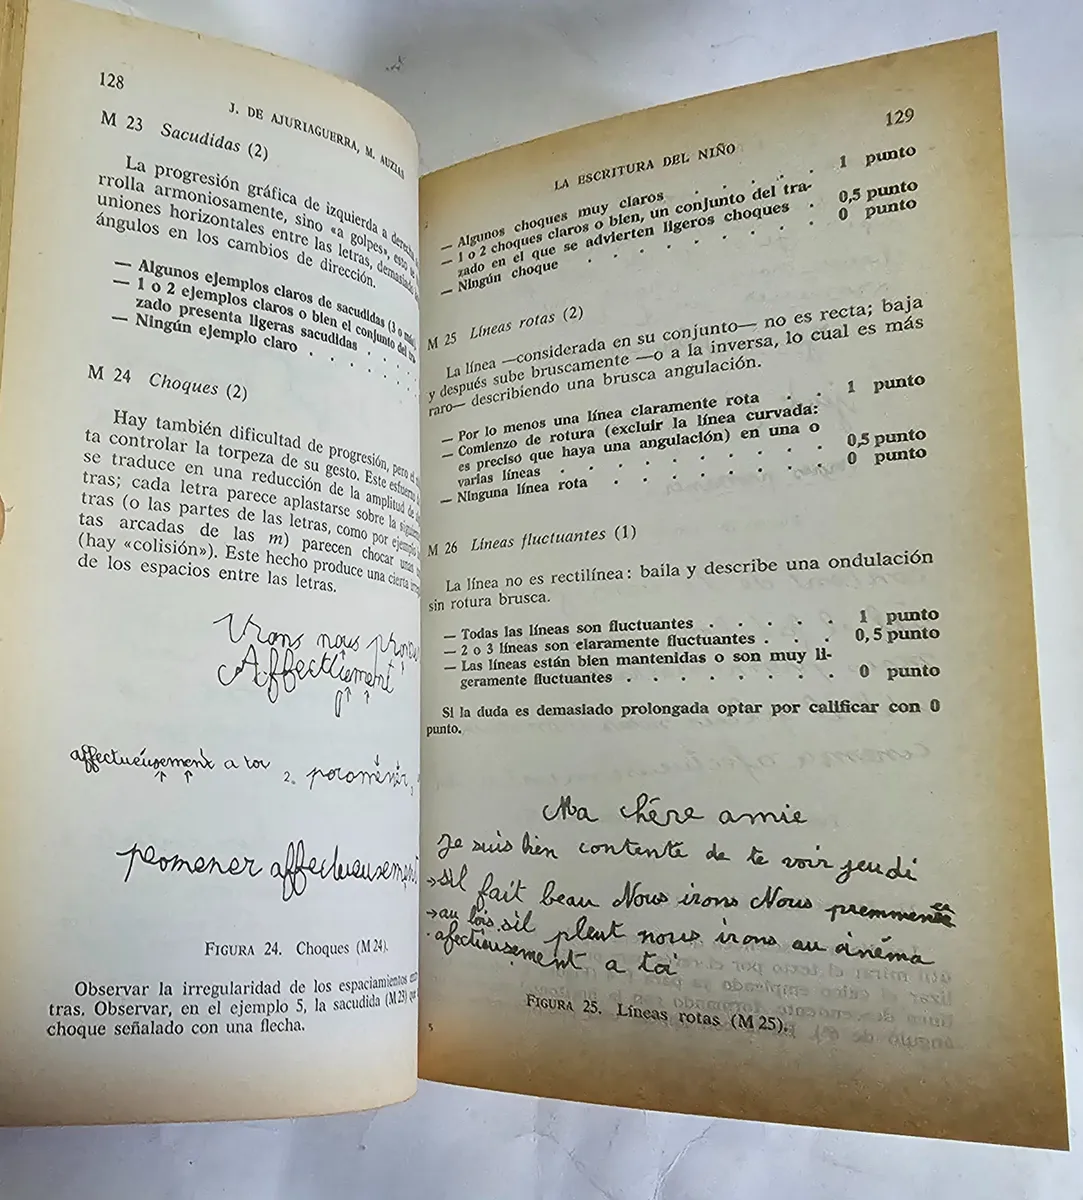 128
J. DE AJURIAGUERRA, M. AUZIAS
M 23 Sacudidas (2)
La progresión gráfica de izquierda a derecha
rrolla armoniosamente, sino «a golpes», esto
uniones horizontales entre las letras, demasiado
ángulos en los cambios de dirección.
— Algunos ejemplos claros de sacudidas (3 o más)
— 1 o 2 ejemplos claros o bien el conjunto del tra-
zado presenta ligeras sacudidas . . .
— Ningún ejemplo claro . . . . .
M 24 Choques (2)
Hay también dificultad de progresión, pero el
ta controlar la torpeza de su gesto. Este esfuerzo
se traduce en una reducción de la amplitud de
tras; cada letra parece aplastarse sobre la
tras (o las partes de las letras, como por ejemplo
tas arcadas de las m) parecen chocar unas
(hay «colisión»). Este hecho produce una cierta
de los espacios entre las letras.
irons nous
Affectiement
affectueusement a toi
2.
promener affectueusement
FIGURA 24. Choques (M 24).
Observar la irregularidad de los espaciamientos
tras. Observar, en el ejemplo 5, la sacudida (M 23)
choque señalado con una flecha.
129
LA ESCRITURA DEL NIÑO
— Algunos choques muy claros . . . . . 1 punto
— 1 o 2 choques claros o bien, un conjunto del tra-
zado en el que se advierten ligeros choques . 0,5 punto
— Ningún choque . . . . . . . 0 punto
M 25 Líneas rotas (2)
La línea —considerada en su conjunto— no es recta; baja
y después sube bruscamente —o a la inversa, lo cual es más
raro— describiendo una brusca angulación.
— Por lo menos una línea claramente rota . . 1 punto
— Comienzo de rotura (excluir la línea curvada:
es preciso que haya una angulación) en una o
varias líneas . . . . . . . . 0,5 punto
— Ninguna línea rota . . . . . . 0 punto
M 26 Líneas fluctuantes (1)
La línea no es rectilínea: baila y describe una ondulación
sin rotura brusca.
— Todas las líneas son fluctuantes . . . . . 1 punto
— 2 o 3 líneas son claramente fluctuantes . . . 0,5 punto
— Las líneas están bien mantenidas o son muy li-
geramente fluctuantes . . . . . . . 0 punto
Si la duda es demasiado prolongada optar por calificar con 0
punto.
Ma chére amie
Je suis bien contente de te voir jeudi
sil fait beau Nous irons Nous
au sil pleut nous irons au cinéma
afectieusement a toi
FIGURA 25. Líneas rotas (M 25).
5